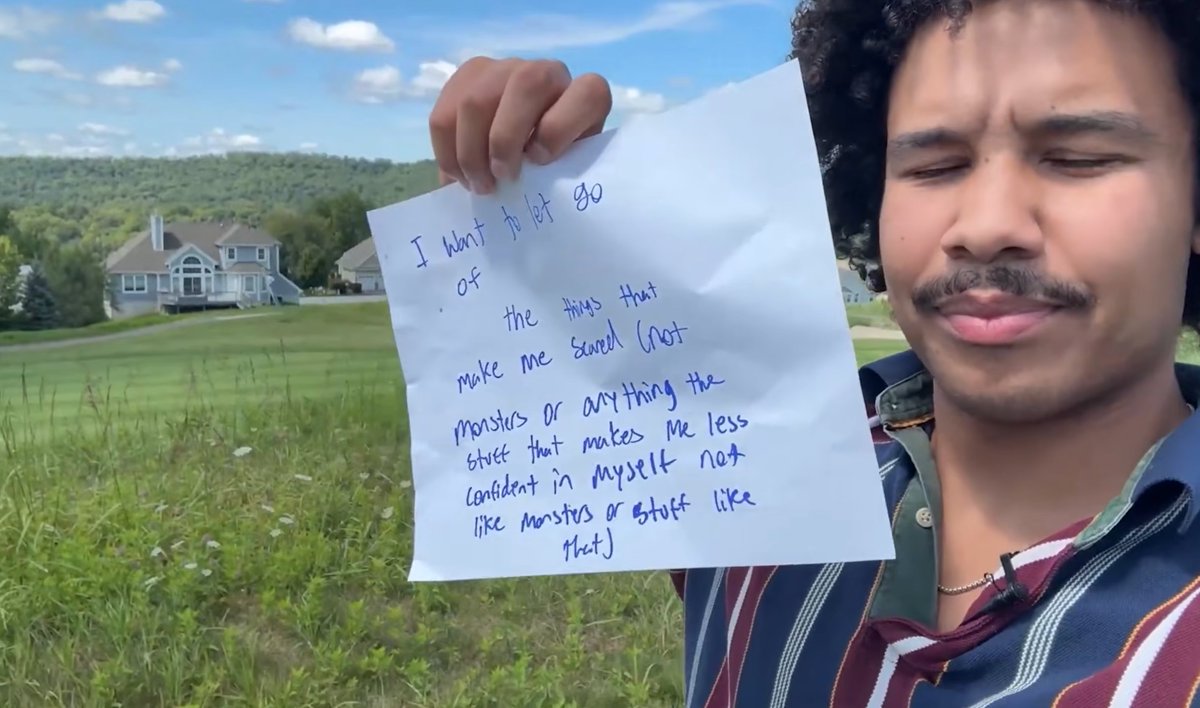 I want to let go
of
the things that
make me scared (not
monsters or anything the
stuff that makes me less
confident in myself not
like monsters or stuff like
that)